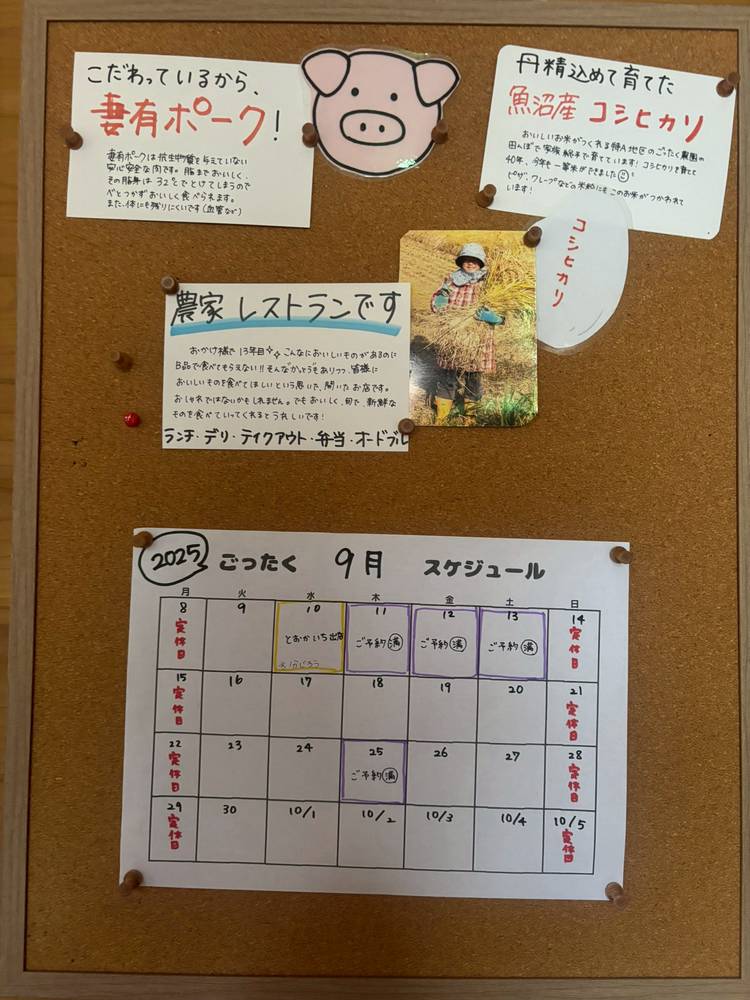 こだわっているから、
妻有ポーク!
妻有ポークは抗生物質を与えていない
安心安全な肉です。脂までおいしく、
その脂身は32℃でとけてしまうので
べとつかずおいしく食べられます。
また、体にも残りにくいです(血管など)
丹精込めて育てた
魚沼産 コシヒカリ
おいしいお米がつくれる特A地区のごったく農園の
田んぼで家族総手で育てています!コシヒカリを育てて
40年、今年も一等米ができました
ピザ、クレープなどの米粉にもこのお米がつかわれて
います!
コシヒカリ
農家レストランです
おかげ様で13年目 こんなにおいしいものがあるのに
B品で食べてもらえない!!そんなかっとうもありつつ、皆様に
おいしいものを食べてほしいという思いで、開いたお店です。
おしゃれではないかもしれません。でもおいしく、旬で、新鮮な
ものを食べていってくれるとうれしいです!
ランチ・デリ・テイクアウト・弁当・オードブル
2025 ごったく 9月 スケジュール
月 火 水 木 金 土 日
8 9 10 11 12 13 14
定休日 とおかいち出店 ご予約満 ご予約満 ご予約満 定休日
15 16 17 18 19 20 21
定休日 定休日
22 23 24 25 26 27 28
定休日 ご予約満 定休日
29 30 10/1 10/2 10/3 10/4 10/5
定休日 定休日